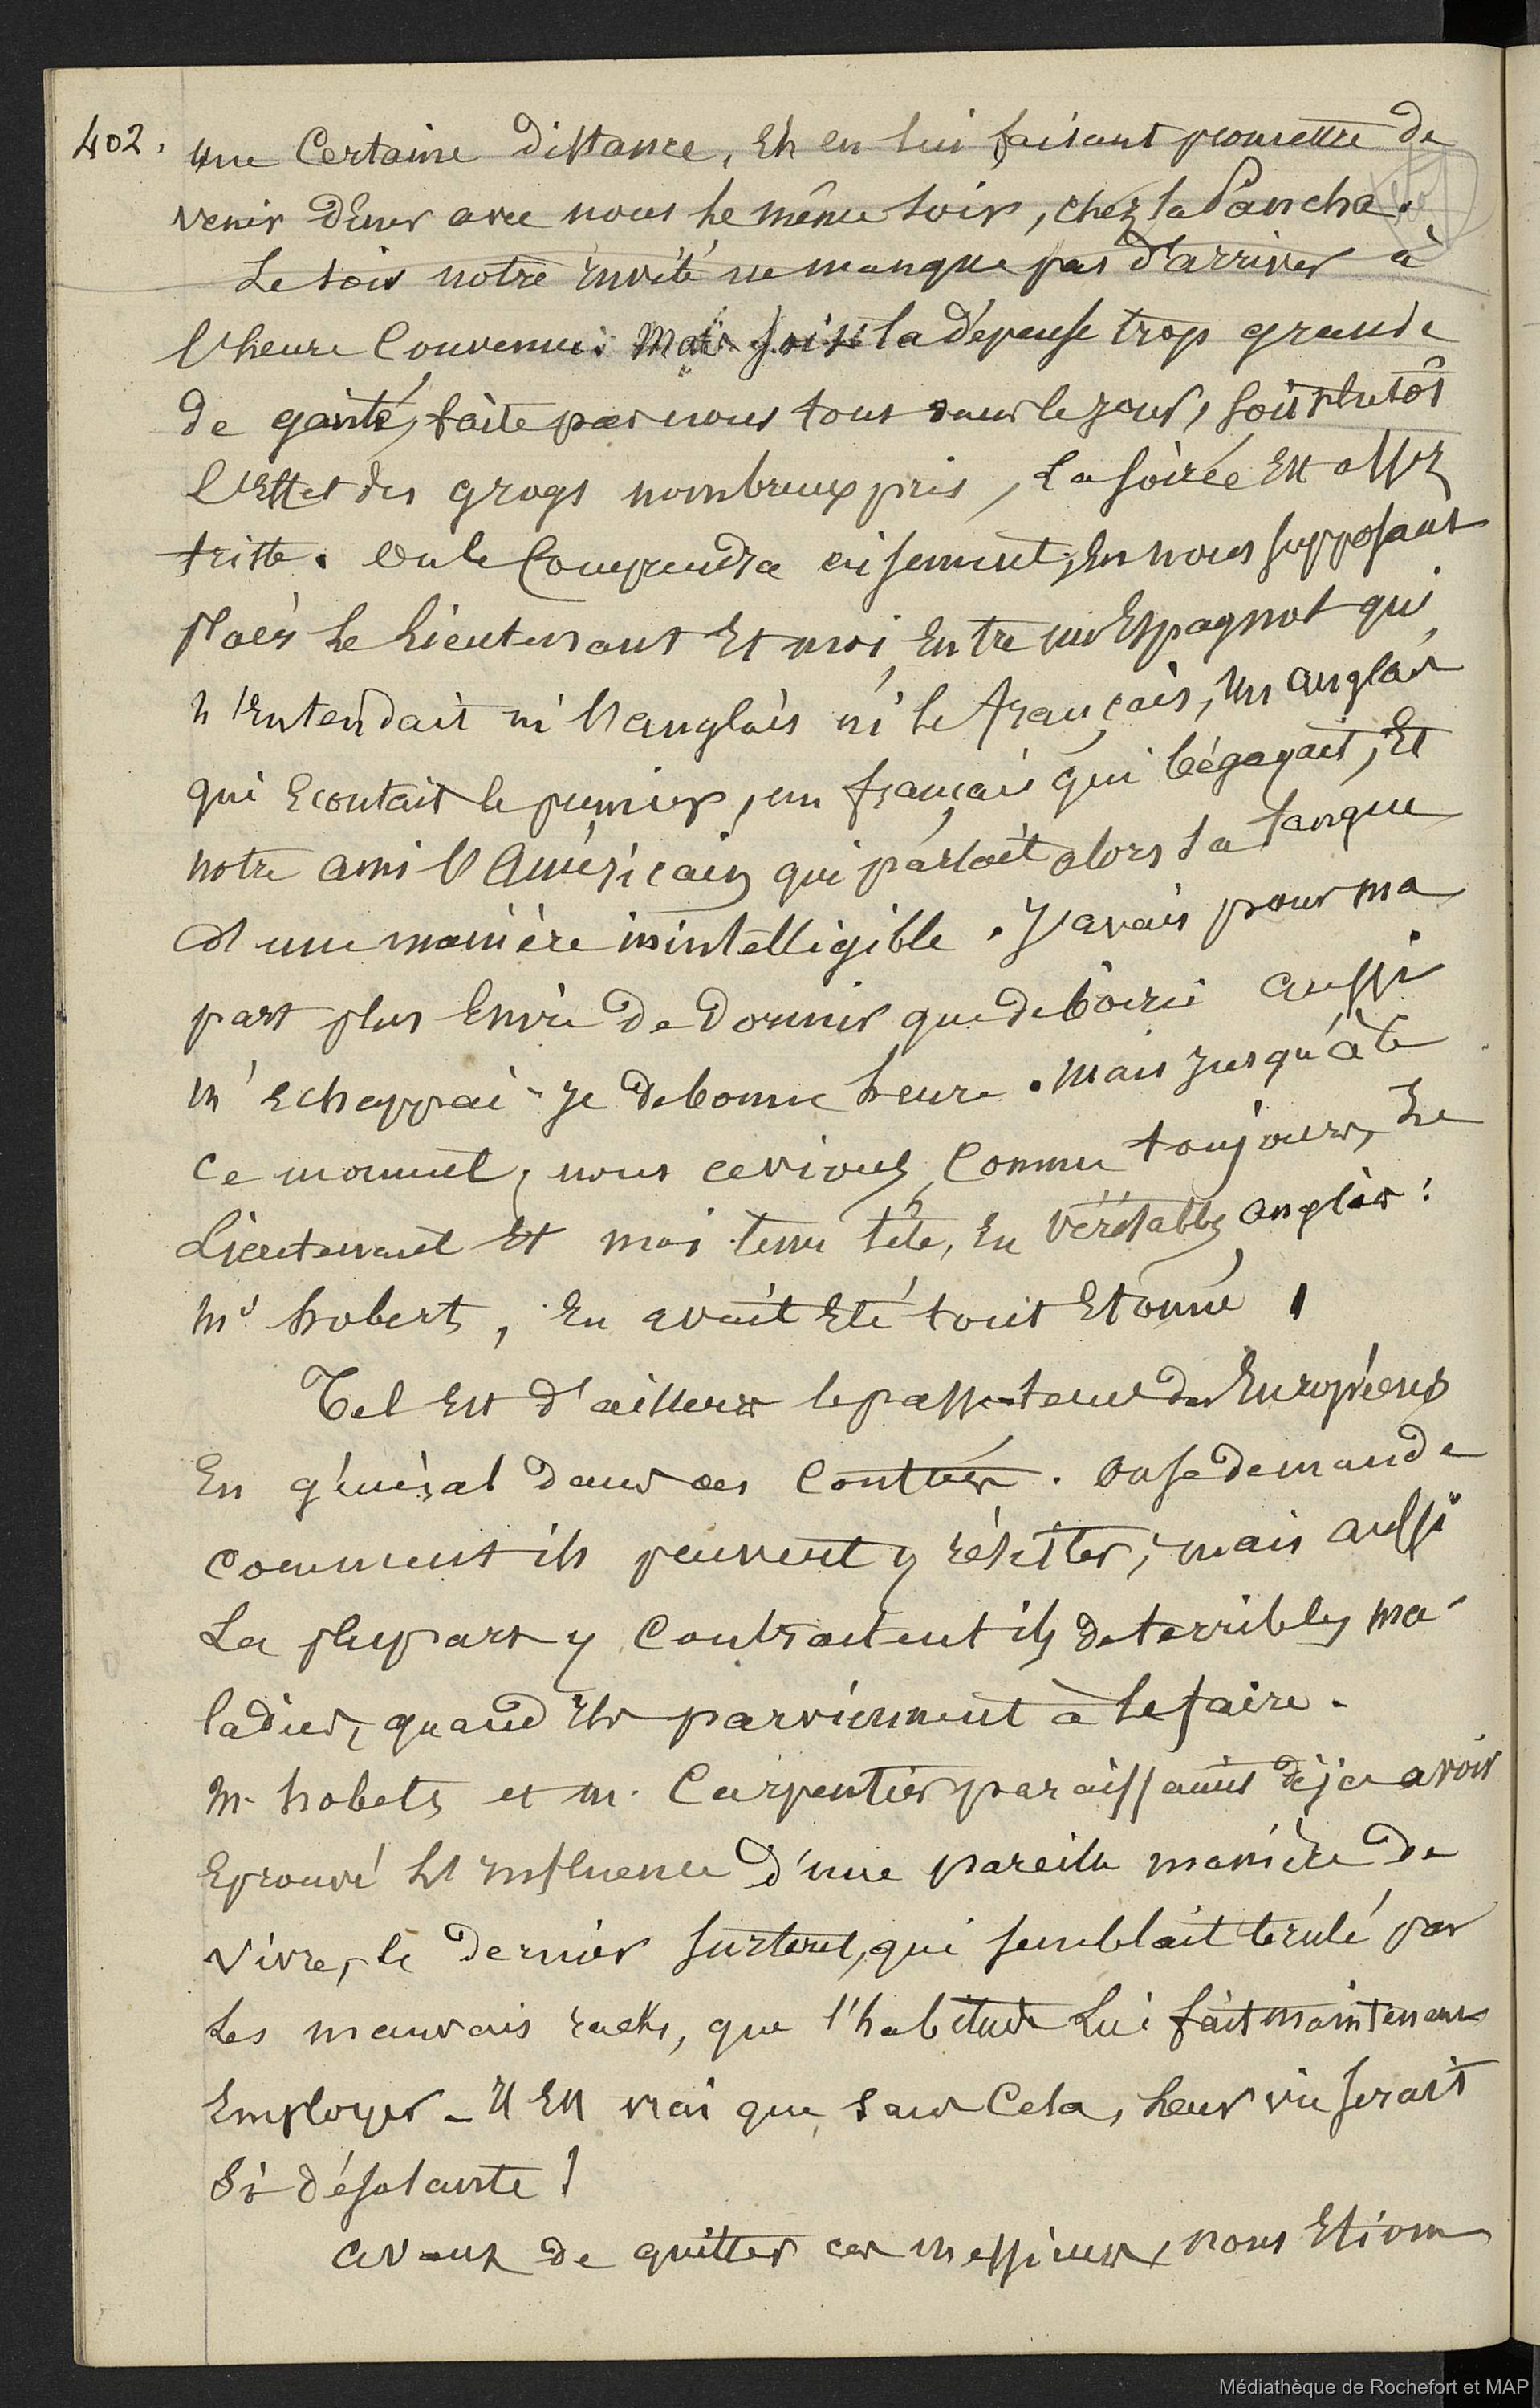 402. une Certaine distance, Et en lui faisant promettre de
venir dîner avec nous le même soir, chez la Pancha.
Le soir notre invité ne manque pas d'arriver à
l'heure Convenue. Mais soit la dépense trop grande
de gaité, faite par nous tous dans le jour, soit plutôt
l'Effet des grogs nombreux pris, La soirée Est assez
triste. On le Comprendra aisement, En nous supposant
placés Le Lieutenant Et moi, Entre un Espagnol qui
n'Entendait ni l'anglais ni le français, Un anglais
qui Ecoutait le premier, un français qui bégayait, Et
notre ami l'Américain qui parlait alors sa langue
d'une manière inintelligible. J'avais pour ma
part plus Envie De Dormir que de boire aussi
m'echappai-je de bonne heure. Mais jusqu'à
ce moment, nous avions, Comme toujours, Le
Lieutenant Et moi tenu tête, En véritables anglais:
Mr Robert, En avait Eté tout Etonné!
Tel Est d'ailleurs le passe-temps des Européens
En général dans ces Contrées. On se demande
comment ils peuvent y résister; mais aussi
La plupart y Contractent ils de terribles ma-
ladies, quand ils parviennent à le faire.
M. Robets et M. Carpentier paraissaient déja avoir
Eprouvé L'influence d'une pareille manière De
vivre, le dernier surtout, qui semblait brulé par
Les mauvais racks, que l'habitude Lui fait maintenant
Employer. Il Est vrai que sans Cela, Leur vie serait
Si désolante!
Avant de quitter ces messieurs, nous Etions
Médiathèque de Rochefort et MAP